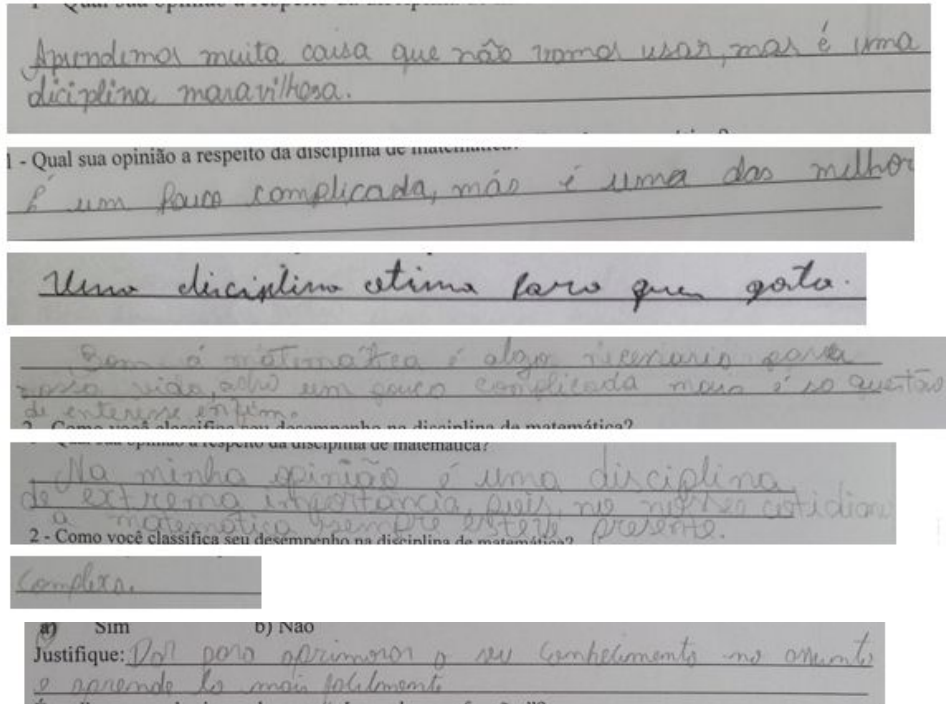 Aprendemos muita coisa que não vamos usar, mas é uma
diciplina maravilhosa.
1 - Qual sua opinião a respeito da disciplina de matemática?
É um pouco complicada, más é uma das melhor
Uma diciplina otima para quem gosta.
Bom a matematica é algo necesario para
nossa vida, acho um pouco complicada mais é so questão
de enteresse enfim.
2 - Como você classifica seu desempenho na disciplina de matemática?
Qual sua opinião a respeito da disciplina de matemática?
Na minha opinião é uma disciplina
de extrema importancia, pois, no nosso cotidiano
a matemática sempre esteve presente.
2 - Como você classifica seu desempenho na disciplina de matemática?
Complexa.
a) Sim b) Não
Justifique: para aprimorar o seu conhecimento no assunto
e aprende lo mais